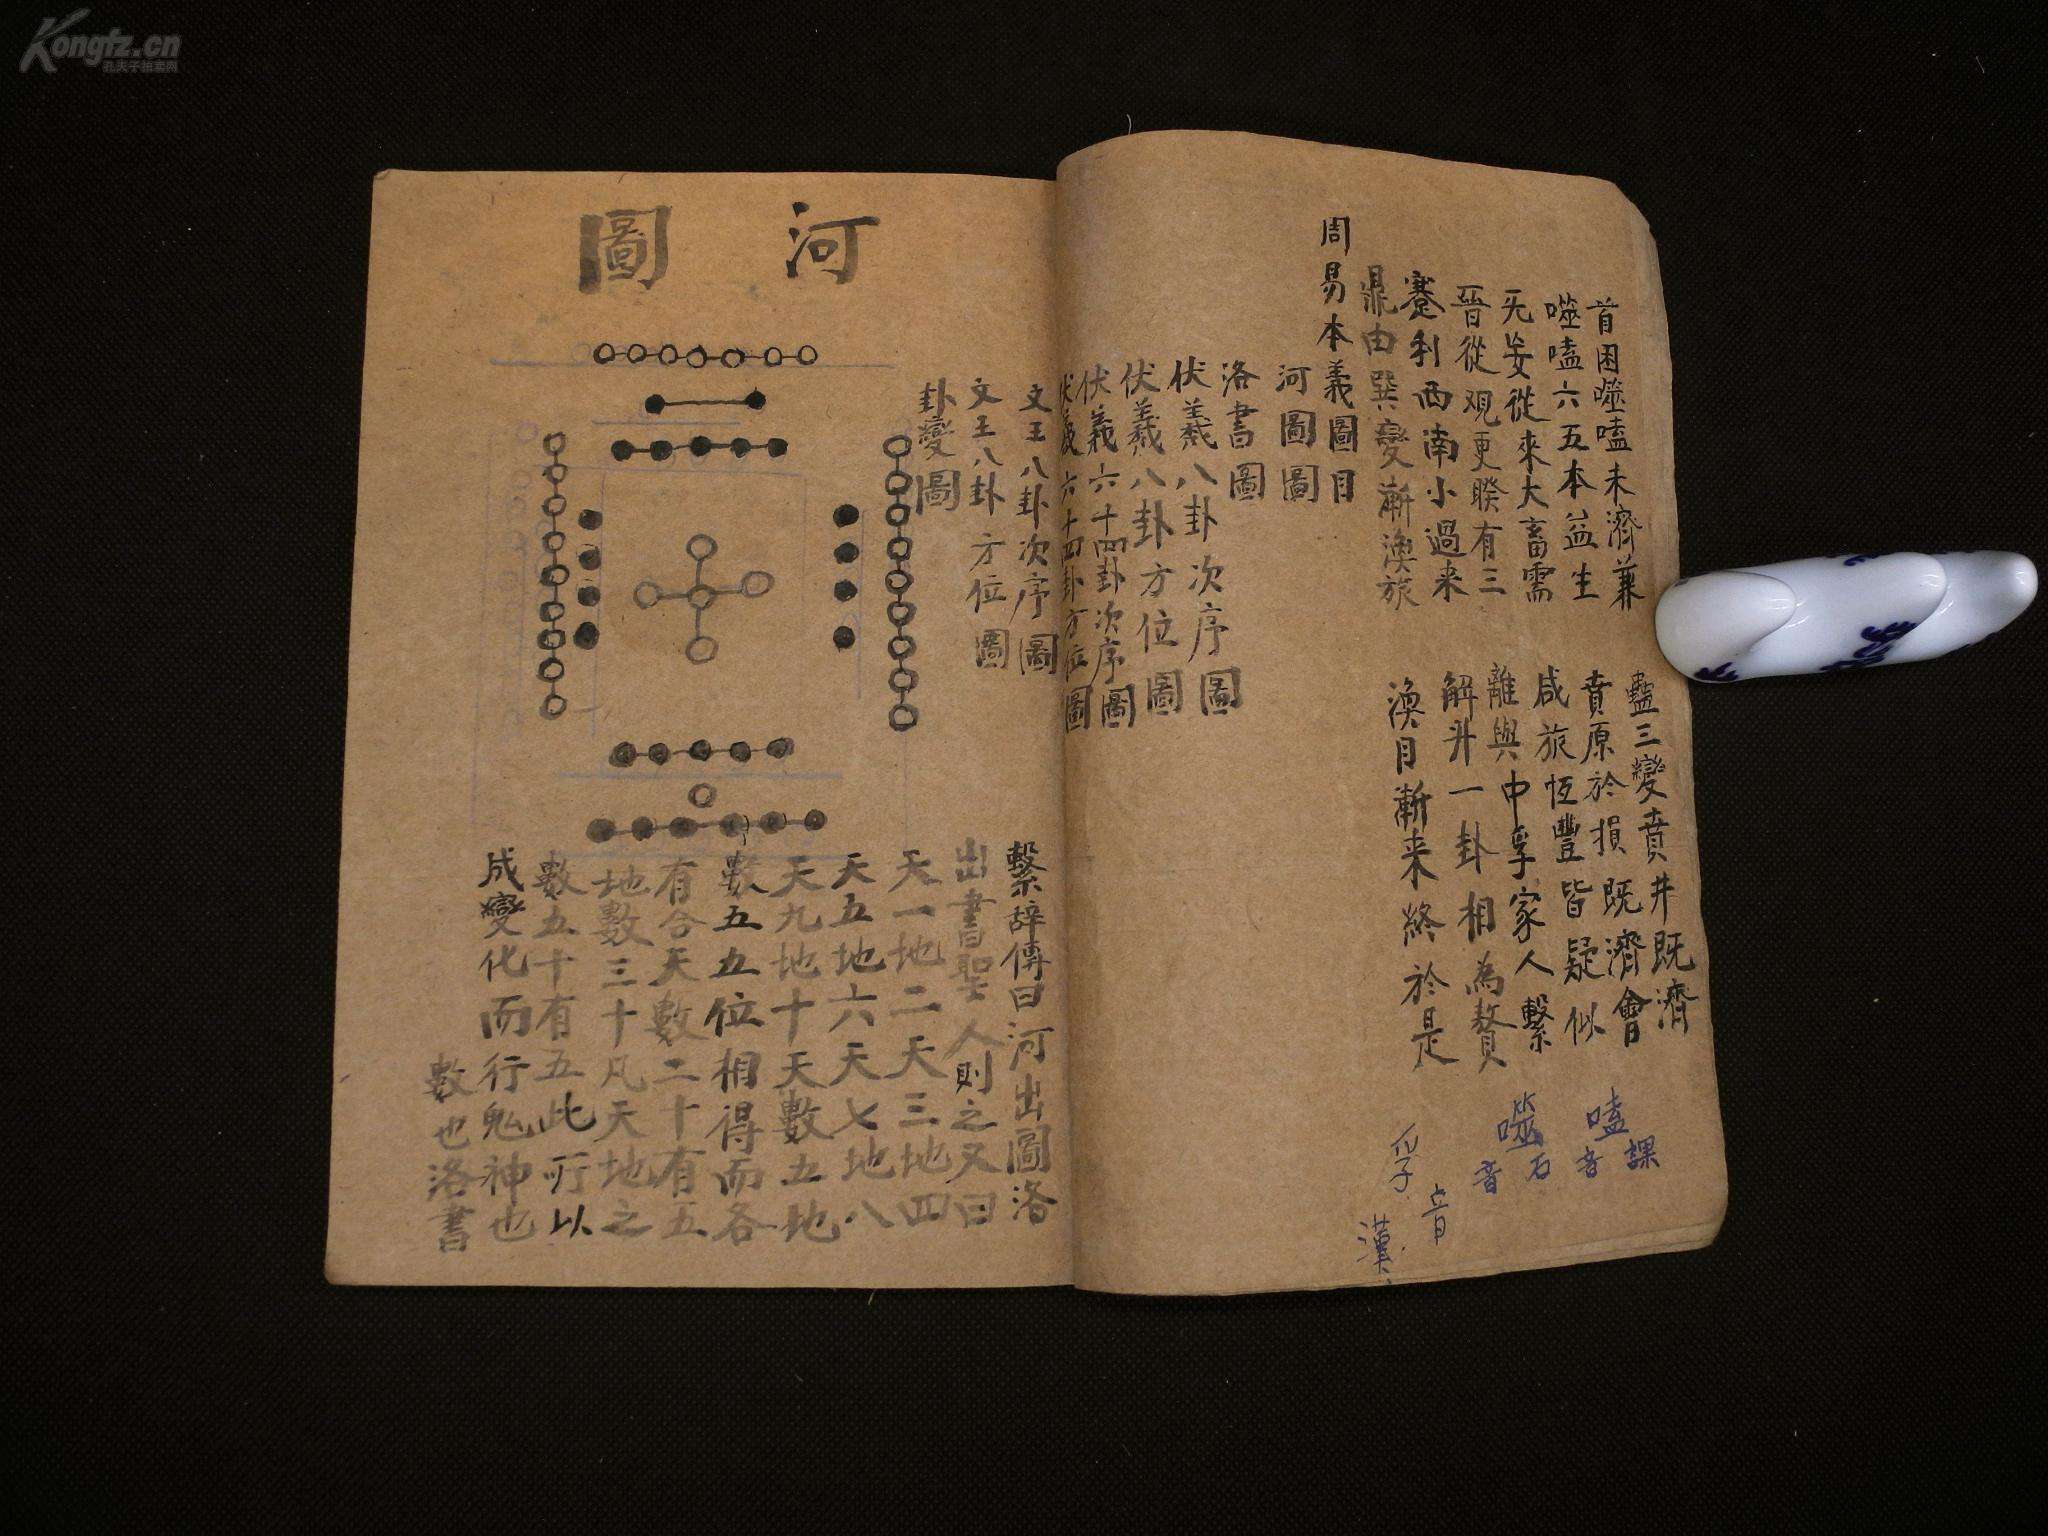 Kongfz.cn
孔夫子拍卖网
首困噬嗑未濟兼
蠱三變賁井既濟
噬嗑六五本益生
賁原於損既濟會
无妄從來大畜需
咸旅恆豐皆疑似
晉從观更睽有三
離與中孚家人繫
蹇利西南小過来
解升一卦相為贅
鼎由巽變漸渙旅
渙目漸来終於是
嗑音課
噬音石
孚音
漢
周易本義圖目
河圖圖
洛書圖
伏羲八卦次序圖
伏羲八卦方位圖
伏羲六十四卦次序圖
伏羲六十四卦方位圖
文王八卦次序圖
文王八卦方位圖
卦變圖
河圖
繫辭傳曰河出圖洛
出書聖人則之又曰
天一地二天三地四
天五地六天七地八
天九地十天數五地
數五五位相得而各
有合天數二十有五
地數三十凡天地之
數五十有五此所以
成變化而行鬼神也
數也洛書